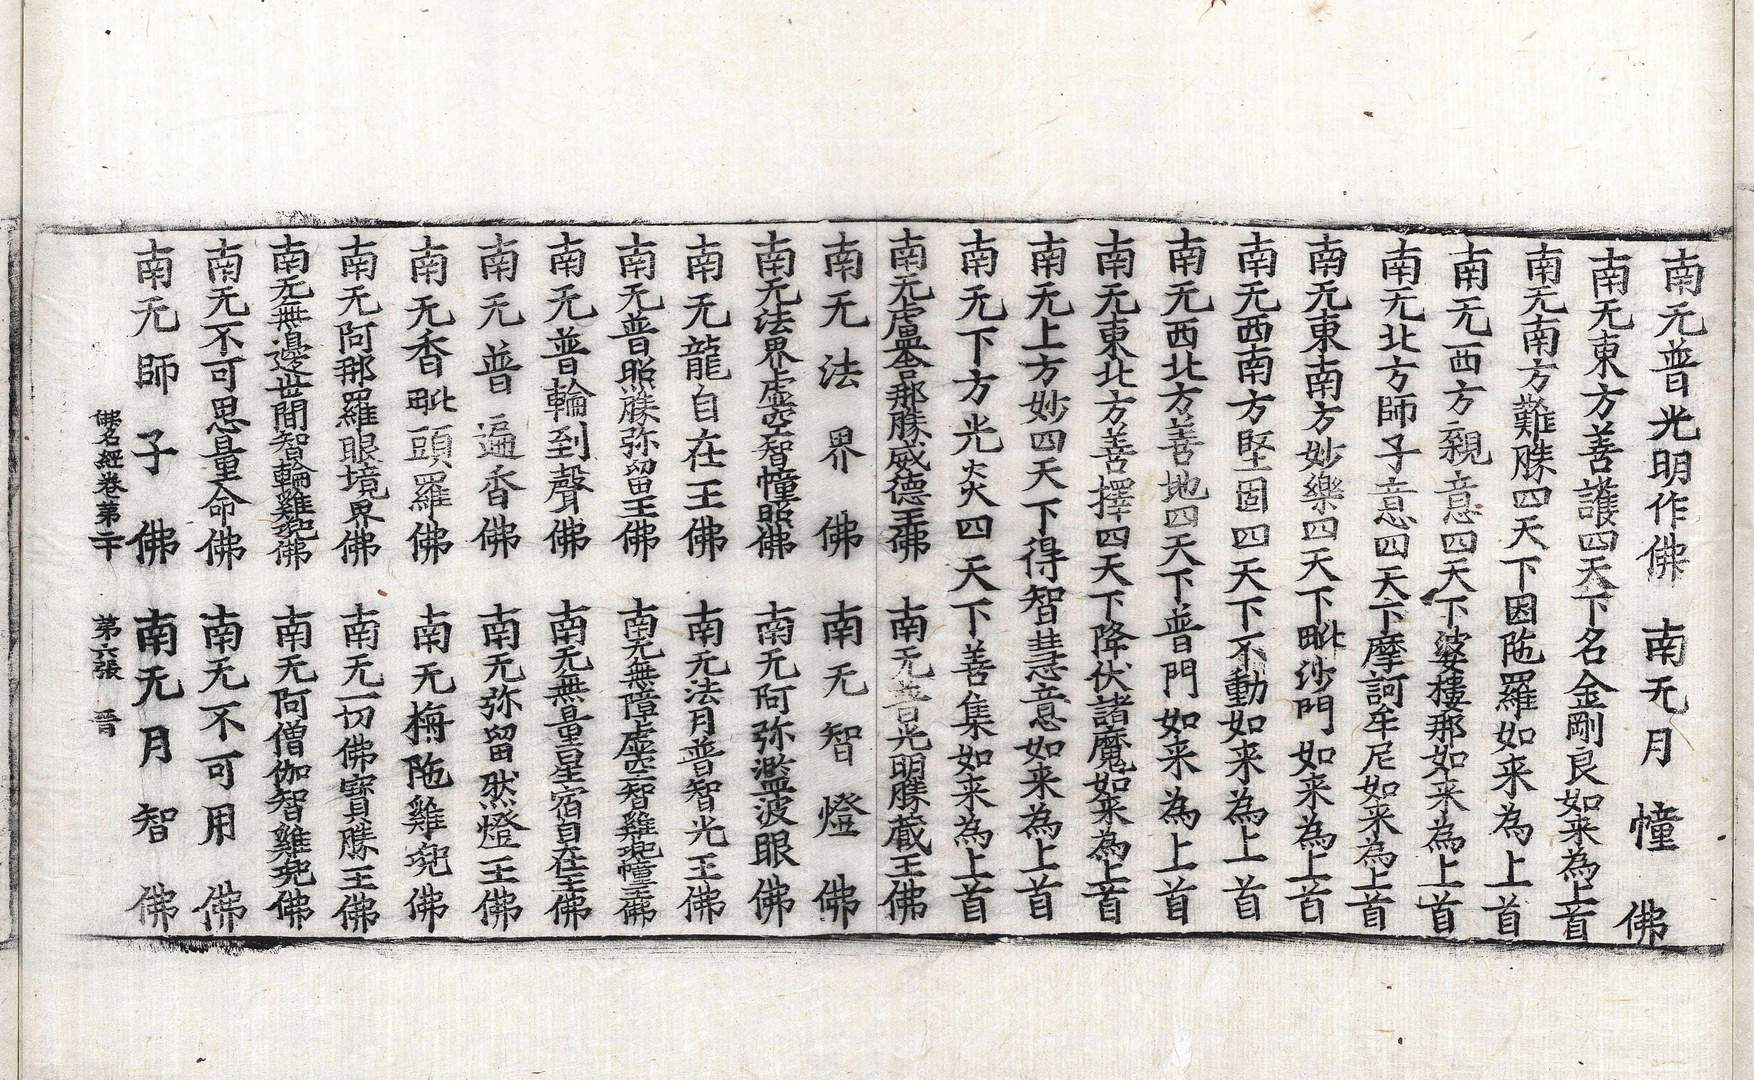 南无普光明作佛　南无月幢佛
南无東方善護四天下名金剛良如来為上首
南无南方難勝四天下因陁羅如来為上首
南无西方親意四天下婆樓那如来為上首
南无北方師子意四天下摩訶牟尼如来為上首
南无東南方妙樂四天下毗沙門如来為上首
南无西南方堅固四天下不動如来為上首
南无西北方善地四天下普門如来為上首
南无東北方善擇四天下降伏諸魔如来為上首
南无上方妙四天下得智慧意如来為上首
南无下方光炎四天下善集如来為上首
南无盧舍那勝威德王佛　南无普光明勝藏王佛
南无法界佛　南无智燈佛
南无法界虚空智幢照佛　南无阿弥濫波眼佛
南无龍自在王佛　南无法月普智光王佛
南无普照勝弥留王佛　南无無障虚空智雞兜幢王佛
南无普輪到聲佛　南无無量星宿自在王佛
南无普遍香佛　南无弥留然燈王佛
南无香毗頭羅佛　南无栴陁雞兜佛
南无阿那羅眼境界佛　南无一切佛寶勝王佛
南无無邊世間智輪雞兜佛　南无阿僧伽智雞兜佛
南无不可思量命佛　南无不可用佛
南无師子佛　南无月智佛
佛名經卷第二十　第六張　晋